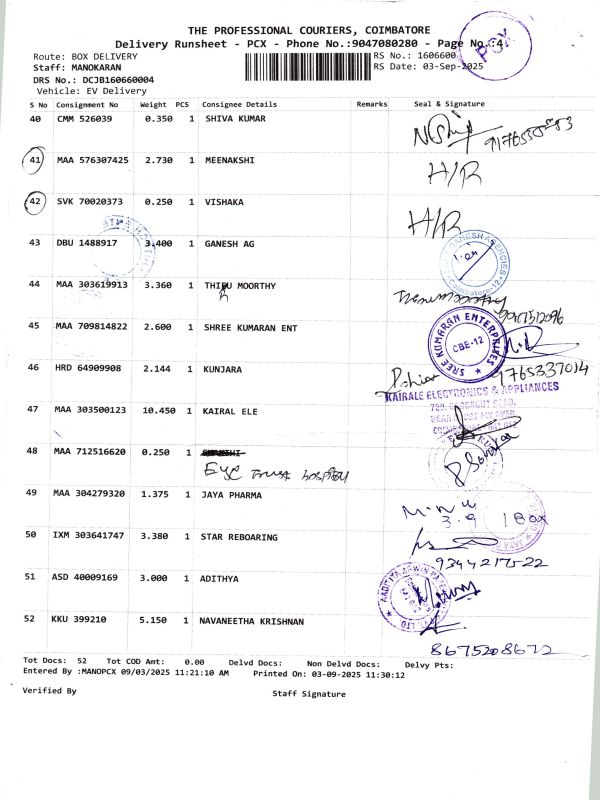 THE PROFESSIONAL COURIERS, COIMBATORE
Delivery Runsheet - PCX - Phone No.:9047080280 - Page No.:4
PCX
Route: BOX DELIVERY
RS No.: 1606600
Staff: MANOKARAN
RS Date: 03-Sep-2025
DRS No.: DCJB160660004
Vehicle: EV Delivery
S No Consignment No Weight PCS Consignee Details Remarks Seal & Signature
40 CMM 526039 0.350 1 SHIVA KUMAR
41 MAA 576307425 2.730 1 MEENAKSHI H/R
42 SVK 70020373 0.250 1 VISHAKA H/R
43 DBU 1488917 3.400 1 GANESH AG
GANESH AGENCIES
Coimbatore-12
44 MAA 303619913 3.360 1 MOORTHY
45 MAA 709814822 2.600 1 SHREE KUMARAN ENT
SREE KUMARAN ENTERPRISES
CBE-12
46 HRD 64909908 2.144 1 KUNJARA 9765337014
KAIRALE ELECTRONICS & APPLIANCES
47 MAA 303500123 10.450 1 KAIRAL ELE
48 MAA 712516620 0.250 1
Eye Trust hospital
49 MAA 304279320 1.375 1 JAYA PHARMA
3.9 1 Box
50 IXM 303641747 3.380 1 STAR REBOARING
9344217522
51 ASD 40009169 3.000 1 ADITHYA
52 KKU 399210 5.150 1 NAVANEETHA KRISHNAN
8675208672
Tot Docs: 52 Tot COD Amt: 0.00 Delvd Docs: Non Delvd Docs: Delvy Pts:
Entered By :MANOPCX 09/03/2025 11:21:10 AM Printed On: 03-09-2025 11:30:12
Verified By Staff Signature